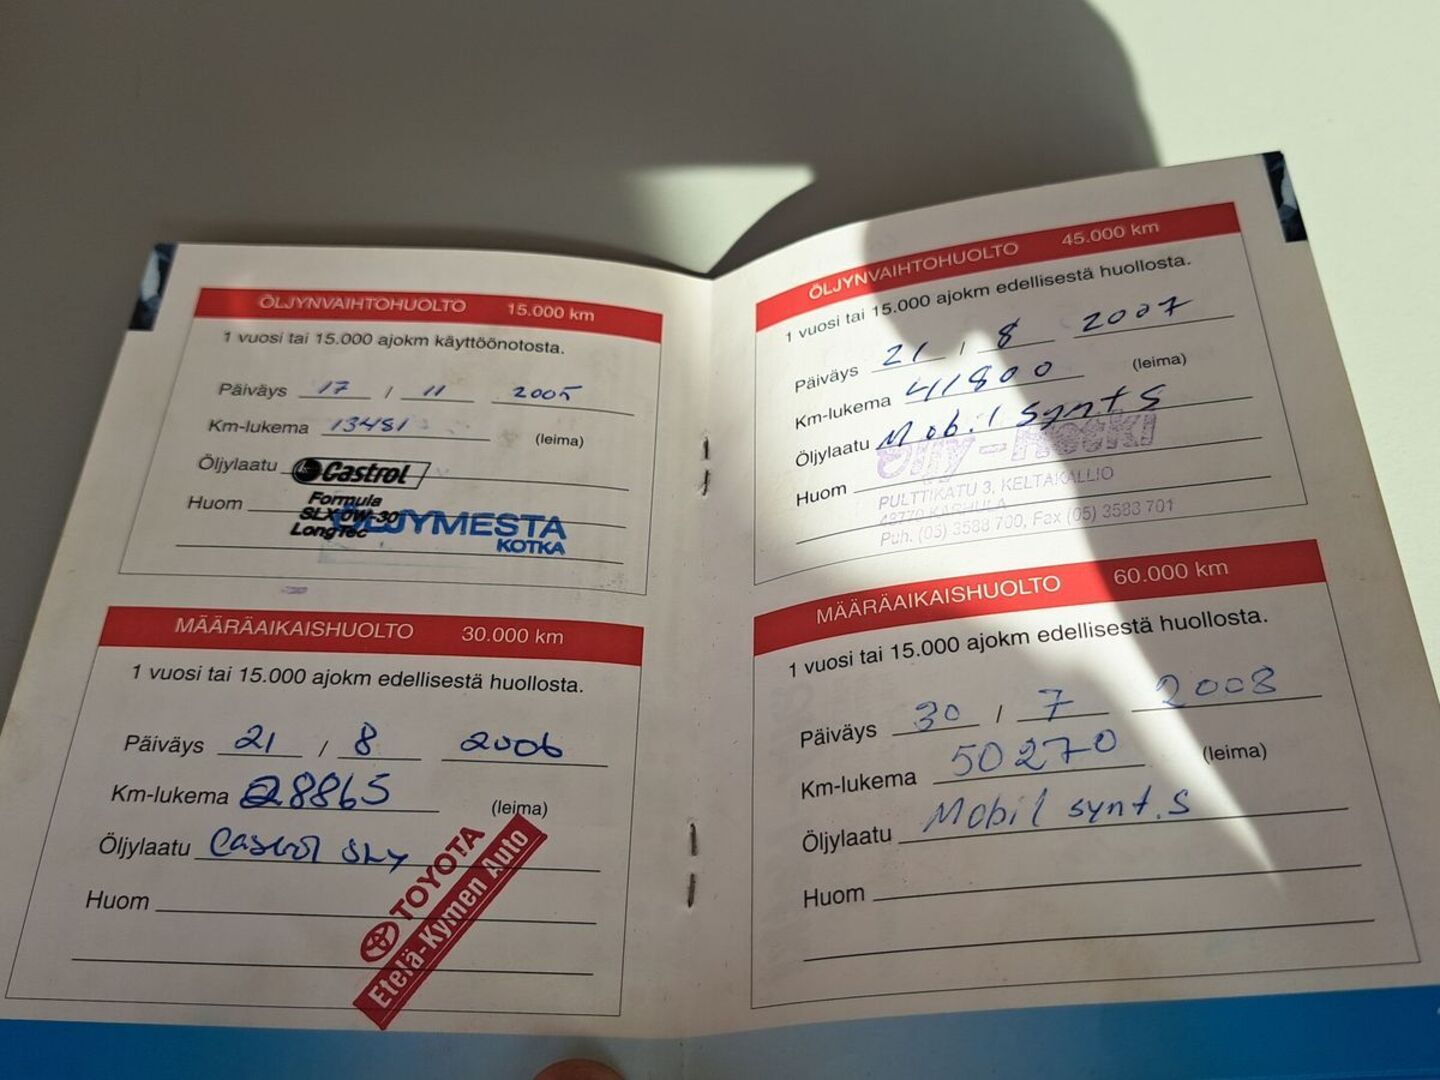 ÖLJYNVAIHTOHUOLTO 15.000 km
1 vuosi tai 15.000 ajokm käyttöönotosta.
Päiväys 17 / 11 2005
Km-lukema 13481
(leima)
Öljylaatu Castrol
Formula
SLX 0W-30
LongTec
Huom
ÖLJYMESTA
KOTKA
MÄÄRÄAIKAISHUOLTO 30.000 km
1 vuosi tai 15.000 ajokm edellisestä huollosta.
Päiväys 21 / 8 2006
Km-lukema 28865
(leima)
Öljylaatu Castrol SLX
Huom
TOYOTA
Etelä-Kymen Auto
ÖLJYNVAIHTOHUOLTO 45.000 km
1 vuosi tai 15.000 ajokm edellisestä huollosta.
Päiväys 21 / 8 2007
Km-lukema 41800
(leima)
Öljylaatu Mobil synt S
Huom
PULTTIKATU 3, KELTAKALLIO
48770 KARHULA
Puh. (05) 3588 700, Fax (05) 3583 701
MÄÄRÄAIKAISHUOLTO 60.000 km
1 vuosi tai 15.000 ajokm edellisestä huollosta.
Päiväys 30 / 7 2008
Km-lukema 50270
(leima)
Öljylaatu Mobil synt.S
Huom